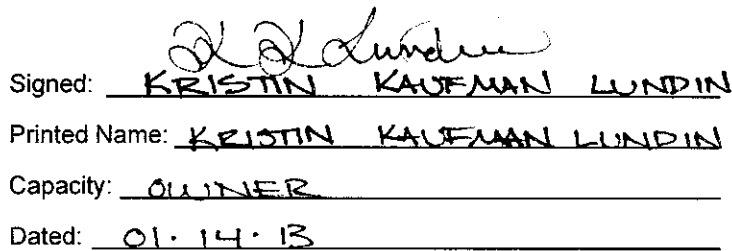 K K Lundin
Signed: KRISTIN KAUFMAN LUNDIN
Printed Name: KRISTIN KAUFMAN LUNDIN
Capacity: OWNER
Dated: 01.14.13